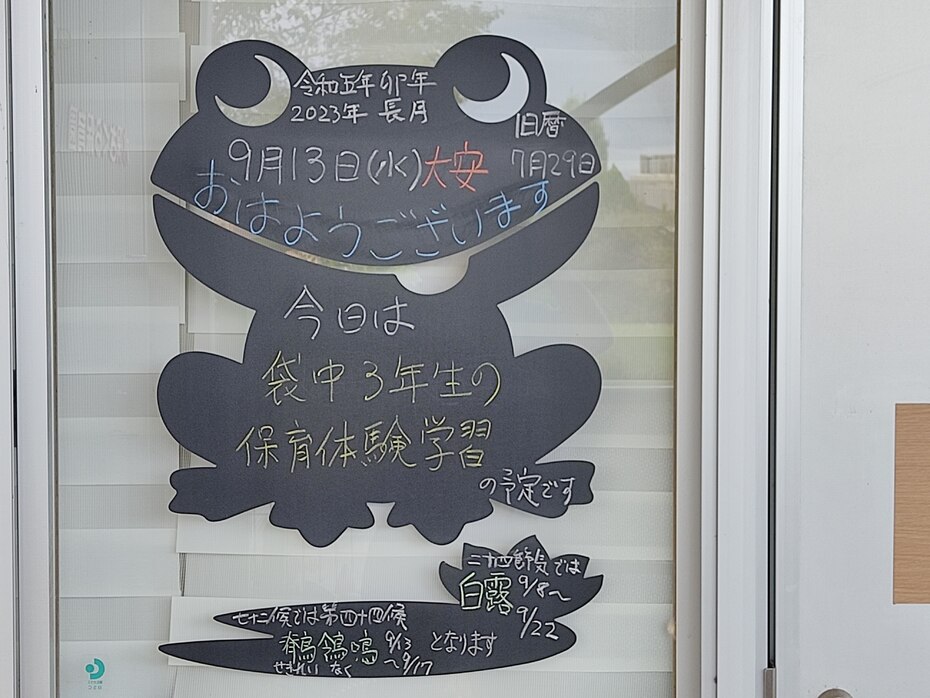 令和五年 卯年
2023年 長月
旧暦
7月29日
9月13日(水)大安
おはようございます
今日は
袋中3年生の
保育体験学習
の予定です
二十四節気では
白露 9/8〜
9/22
七十二候では第四十四候
鶺鴒鳴 9/13 となります
せきれい なく 〜9/17